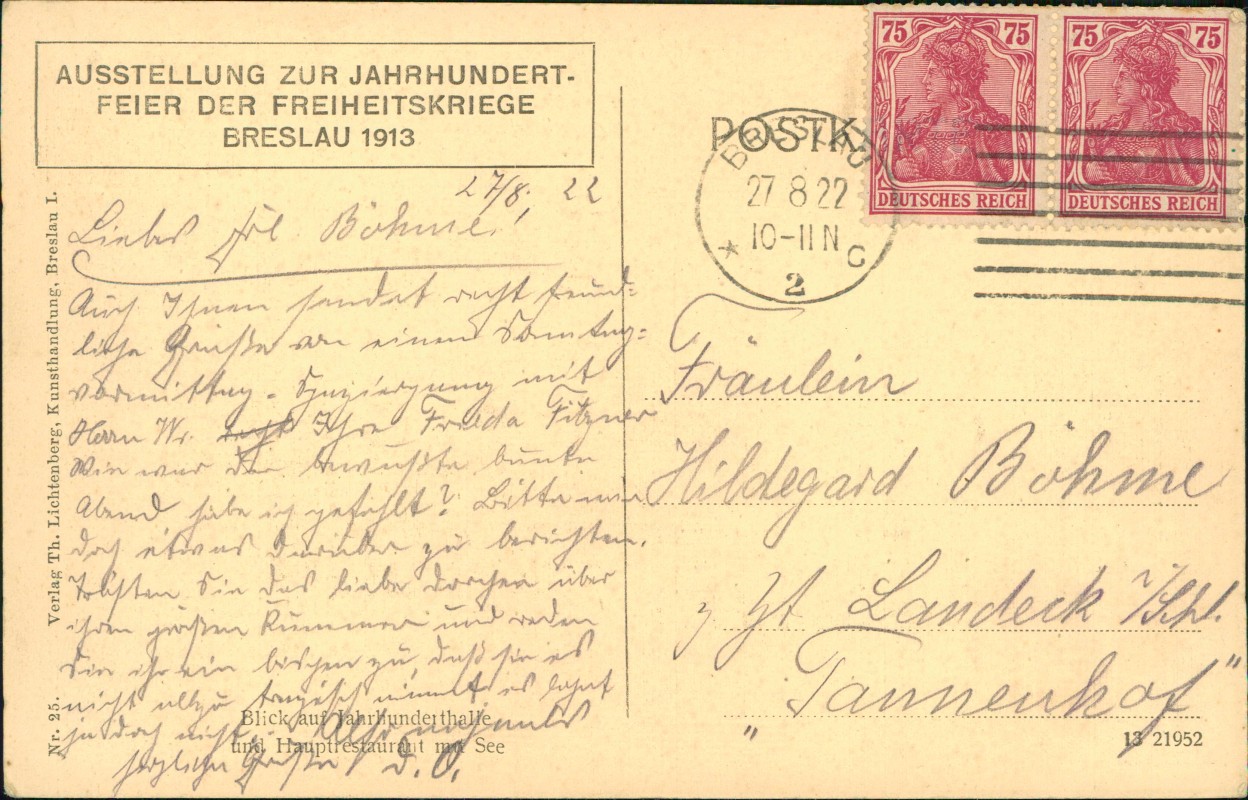 AUSSTELLUNG ZUR JAHRHUNDERT-
FEIER DER FREIHEITSKRIEGE
BRESLAU 1913
27/8. 22
Liebes Frl. Böhme!
Auch Ihnen sendet recht freund-
liche Grüße von einem Sonntag-
vormittag-Spaziergang mit
Herrn W. Ihre Frieda Fitzner
Wie war der bewußte bunte
Abend, habe ich gefehlt? Bitte
doch etwas darüber zu berichten.
Trösten Sie das liebe Dorchen über
ihren großen Kummer und reden
Sie ihr ein bischen zu, daß sie es
nicht allzu tragisch nimmt es lohnt
ja doch nicht. Also nochmals
herzliche Grüße D. O.
Blick auf Jahrhunderthalle
und Hauptrestaurant mit See
Nr. 25. Verlag Th. Lichtenberg, Kunsthandlung, Breslau I.
POSTK
BRESLAU
27 8 22
10-11 N
* 2 C
75 75
DEUTSCHES REICH
75 75
DEUTSCHES REICH
Fräulein
Hildegard Böhme
z Zt Landeck i/Schl.
„Tannenhof"
13 21952